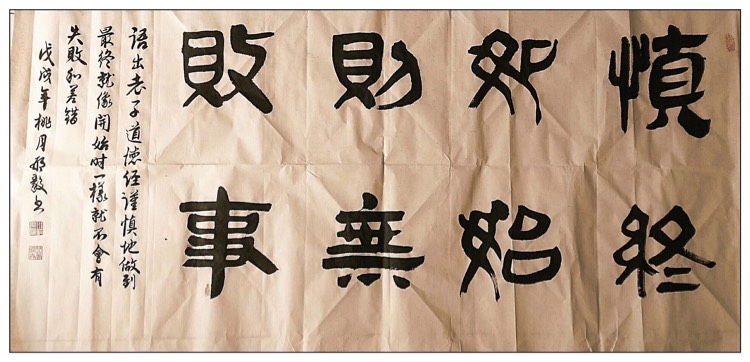 慎終
如始
則無
敗事
語出老子道德经謹慎地做到
最终就像開始时一樣就不會有
失敗和差錯
戊戌年桃月邢毅书